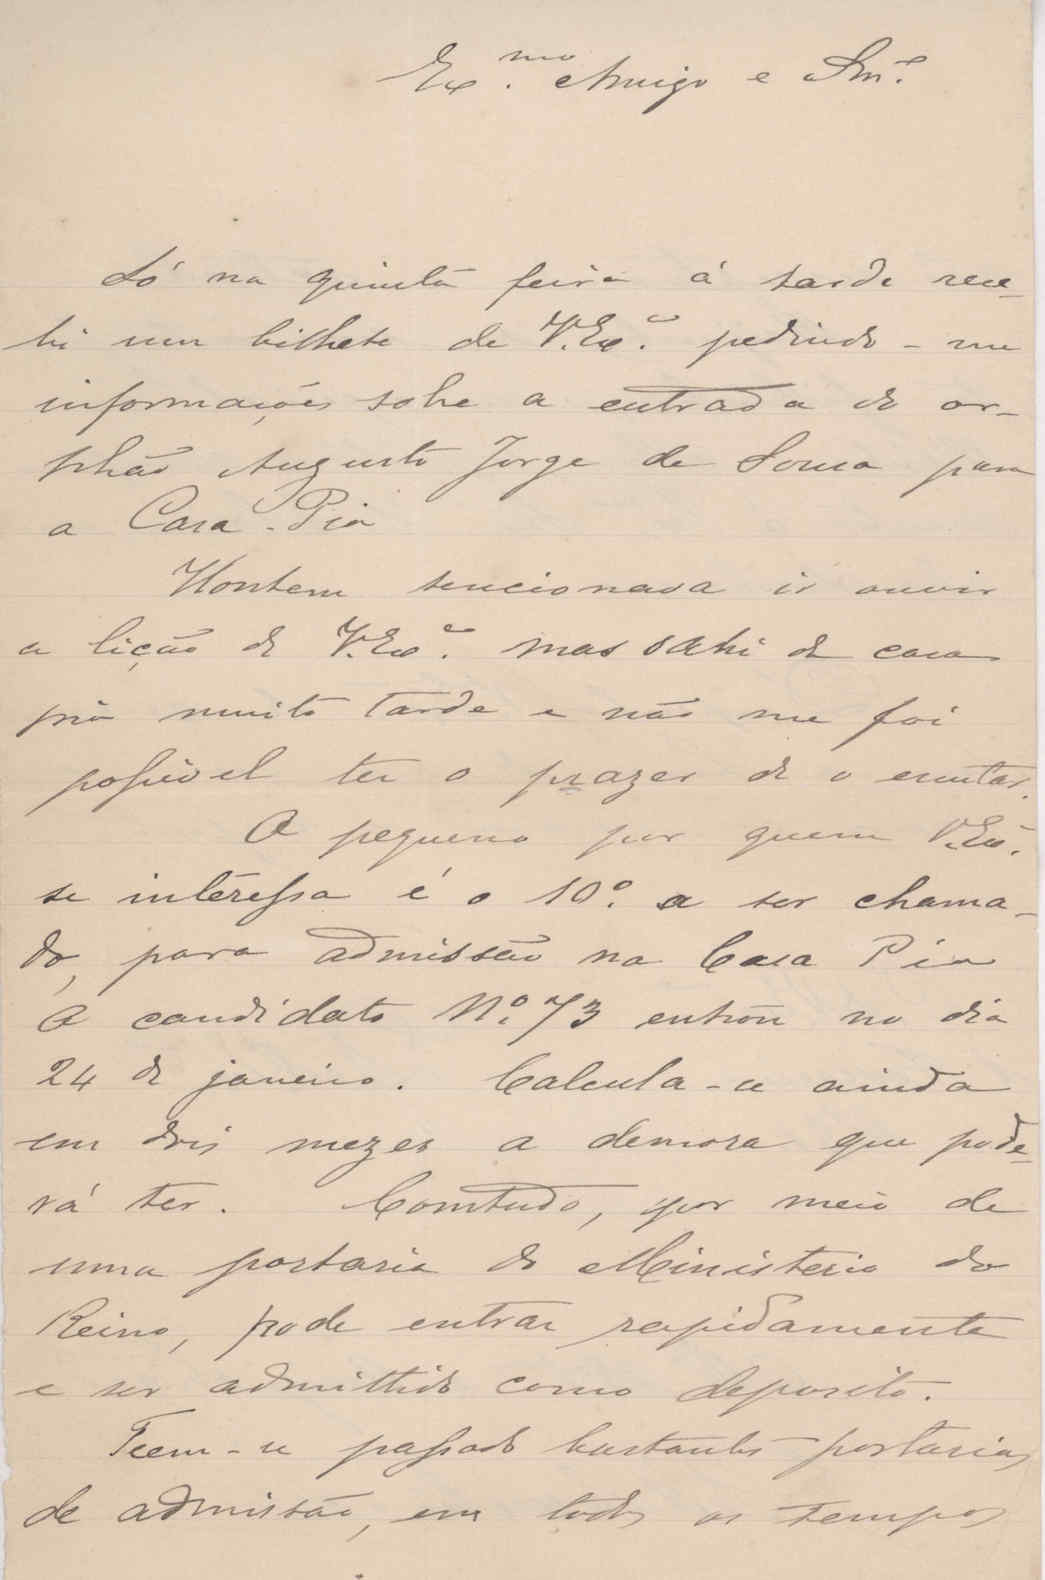 Ex.mo Amigo e Snr.
Só na quinta feira á tarde rece-
bi um bilhete de V. Ex.a pedindo-me
informações sobre a entrada do or-
phão Augusto Jorge de Sousa para
a Casa-Pia
Hontem tencionava ir ouvir
a lição de V. Ex.a mas sahi de casa
já muito tarde e não me foi
possivel ter o prazer de o escutar.
O pequeno por quem V. Ex.a
se interessa é o 10.º a ser chama-
do, para admissão na Casa Pia
O candidato N.º 73 entrou no dia
24 de janeiro. Calcula-se ainda
em dois mezes a demora que pode-
rá ter. Comtudo, por meio de
uma portaria do Ministerio do
Reino, pode entrar rapidamente
e ser admittido como deposito.
Teem-se passado bastantes portarias
de admissão, em todos os tempos